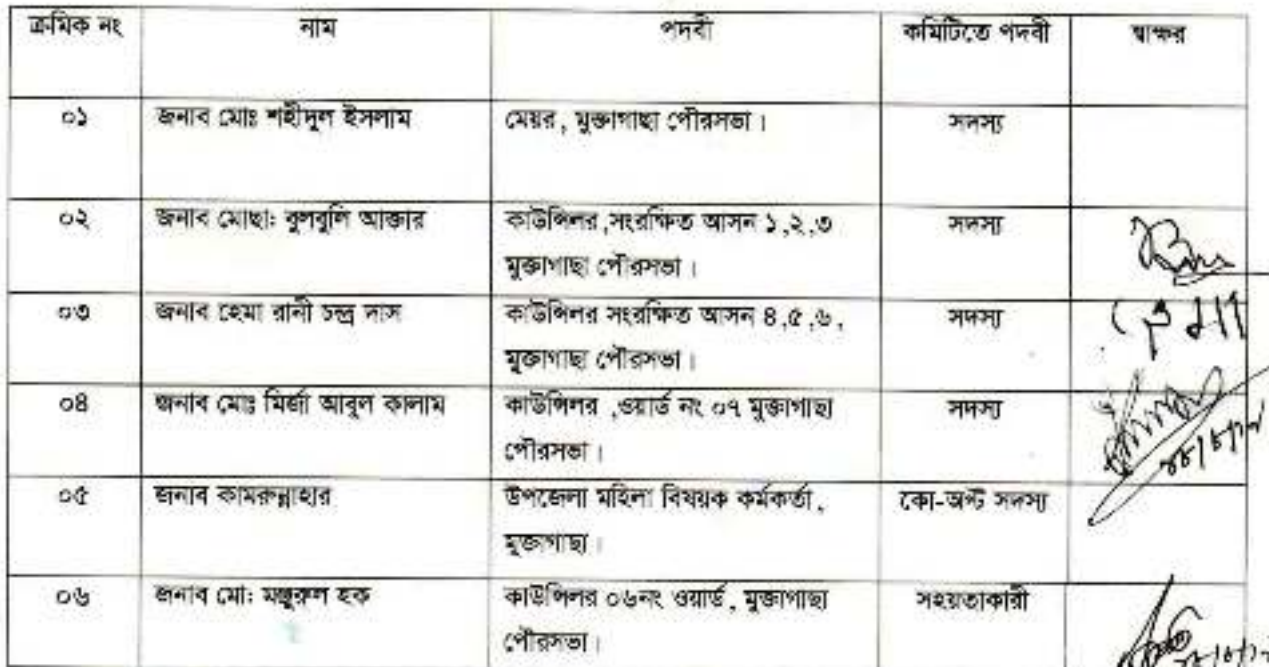 ক্রমিক নং নাম পদবী কমিটিতে পদবী স্বাক্ষর
০১ জনাব মোঃ শহীদুল ইসলাম মেয়র, মুক্তাগাছা পৌরসভা। সদস্য
০২ জনাব মোছা: বুলবুলি আক্তার কাউন্সিলর,সংরক্ষিত আসন ১,২,৩ সদস্য
মুক্তাগাছা পৌরসভা।
০৩ জনাব হেমা রানী চন্দ্র দাস কাউন্সিলর সংরক্ষিত আসন ৪,৫,৬, সদস্য
মুক্তাগাছা পৌরসভা।
০৪ জনাব মোঃ মির্জা আবুল কালাম কাউন্সিলর ,ওয়ার্ড নং ০৭ মুক্তাগাছা সদস্য
পৌরসভা।
০৫ জনাব কামরুন্নাহার উপজেলা মহিলা বিষয়ক কর্মকর্তা, কো-অপ্ট সদস্য
মুক্তাগাছা।
০৬ জনাব মো: মঞ্জুরুল হক কাউন্সিলর ০৬নং ওয়ার্ড, মুক্তাগাছা সহয়তাকারী
পৌরসভা।